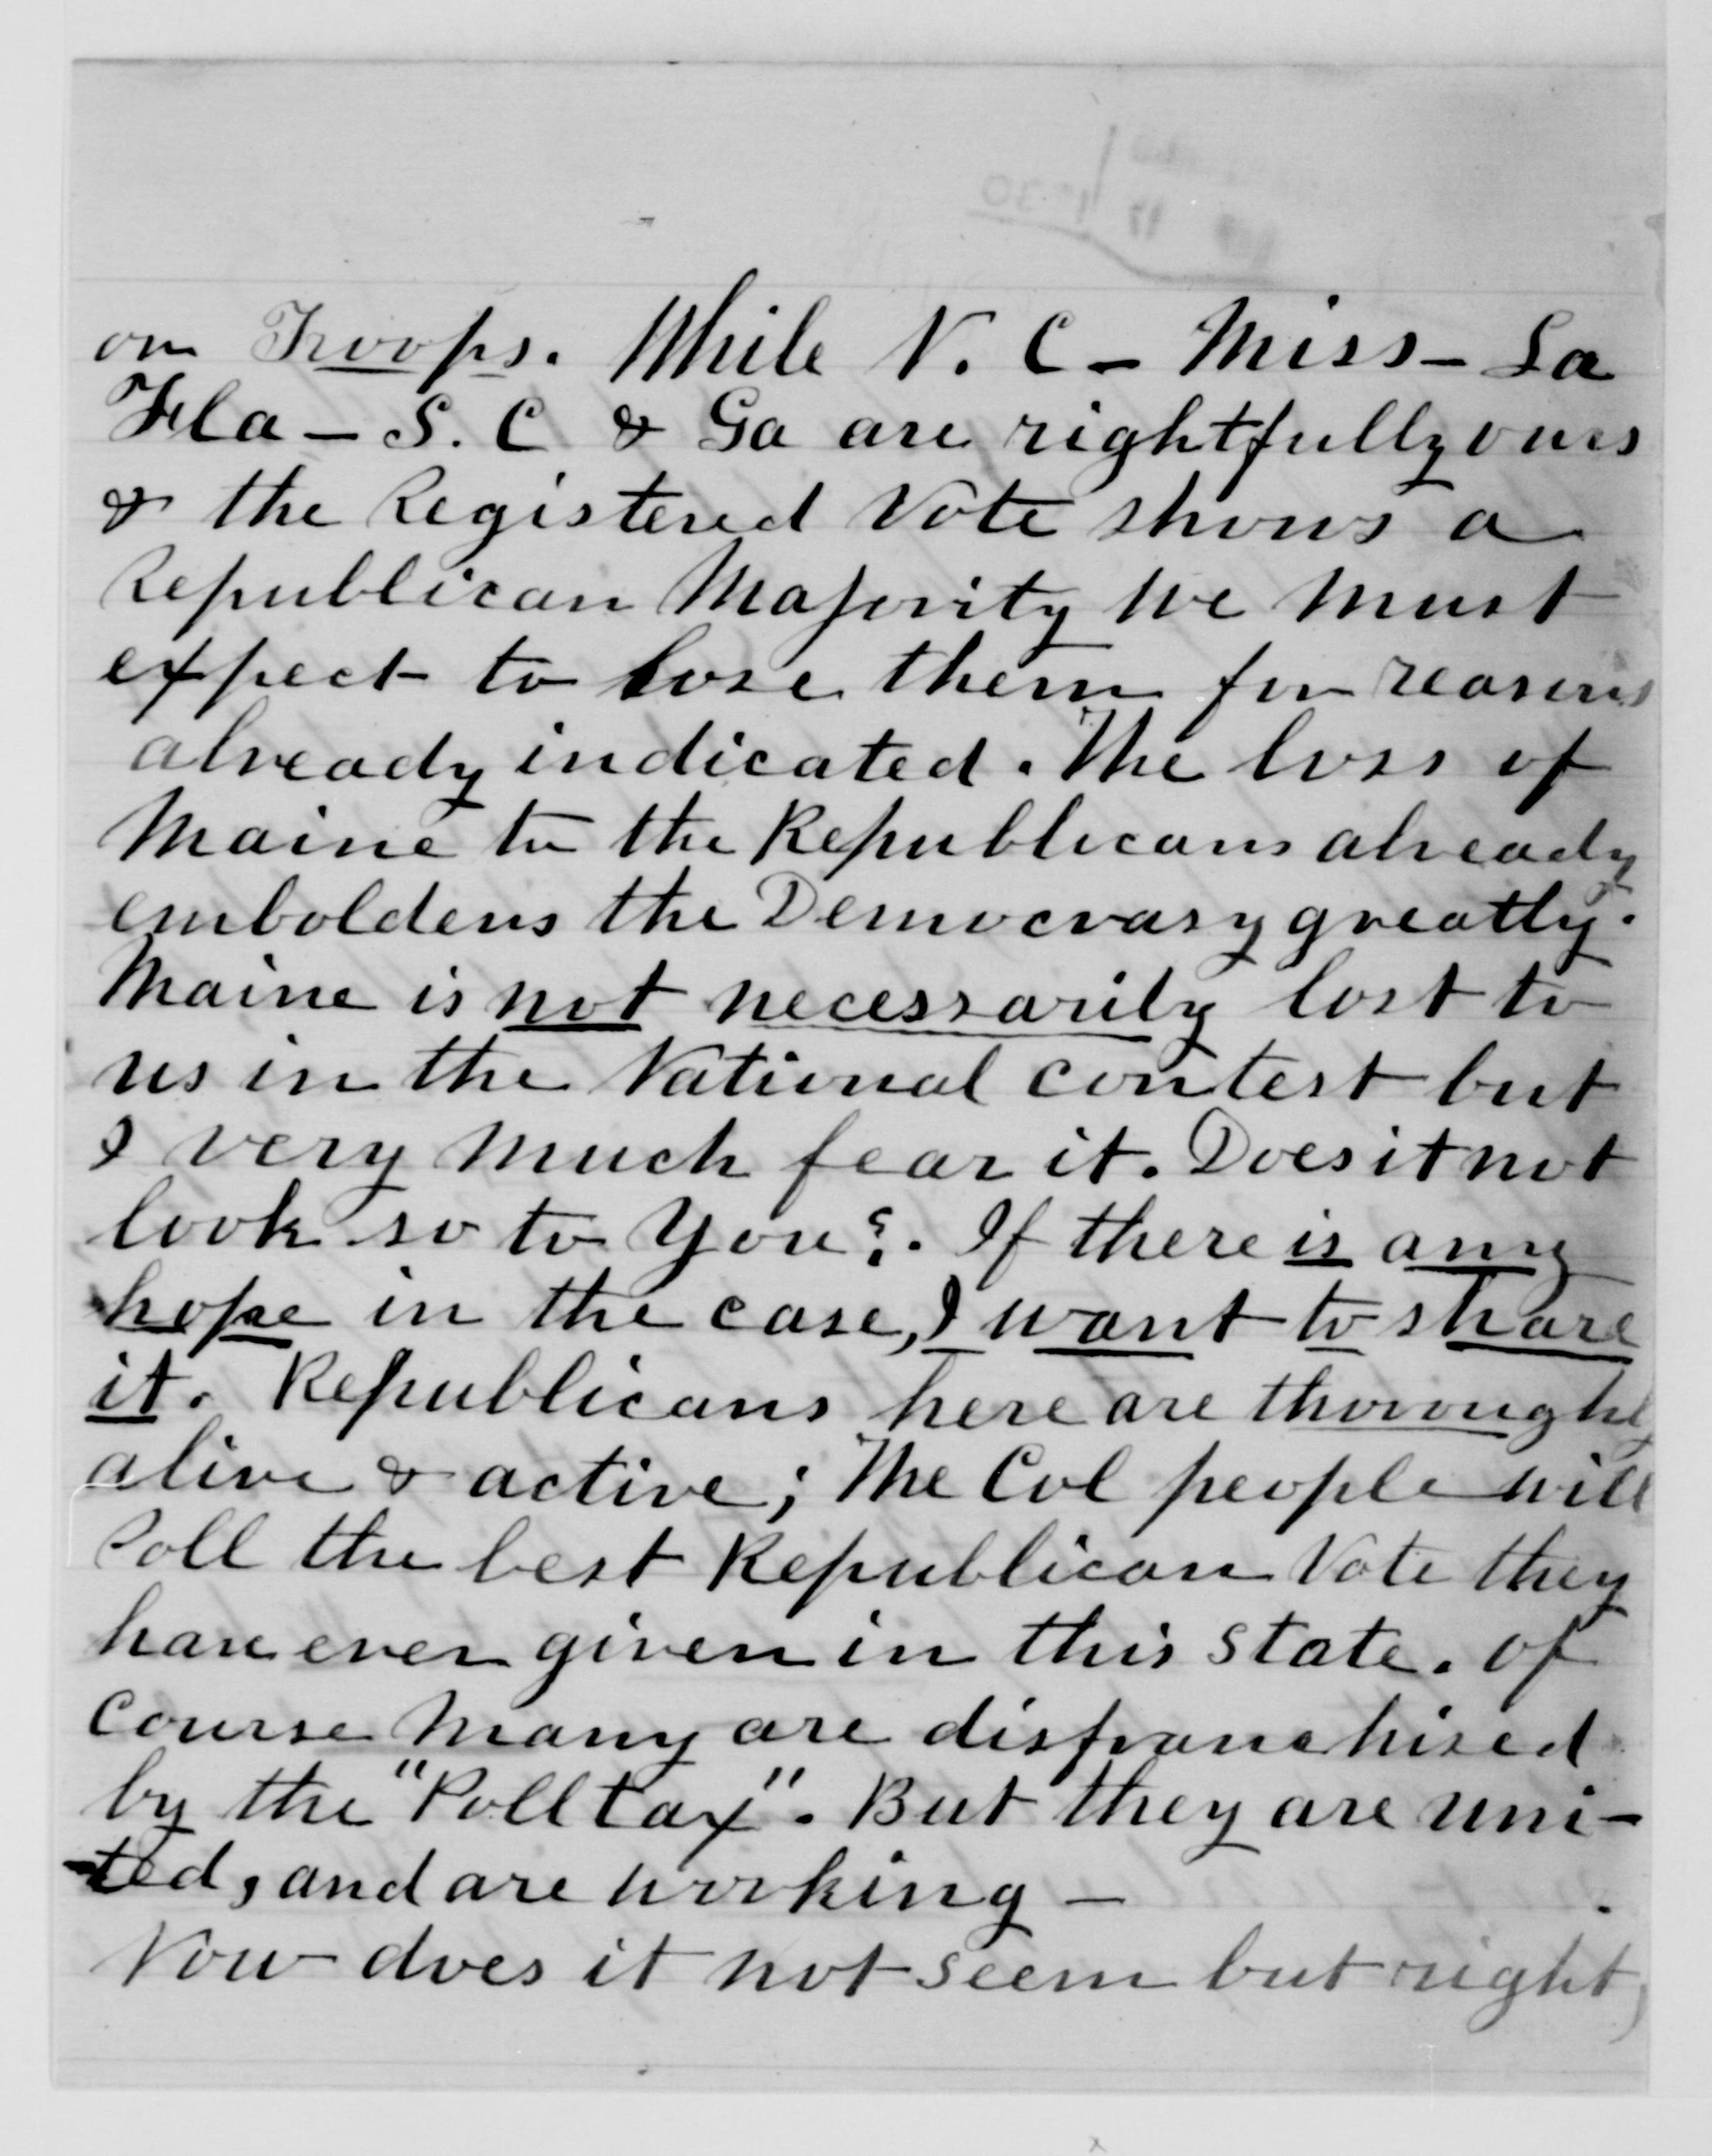 on Troops. While N. C - Miss - La
Fla - S. C & Ga are rightfully ours
& the Registered Vote shows a
Republican Majority we must
expect to lose them for reasons
already indicated. The loss of
Maine to the Republicans already
emboldens the Democrasy greatly.
Maine is not necessarily lost to
us in the National contest but
I very much fear it. Does it not
look so to you?. If there is any
hope in the case, I want to share
it. Republicans here are thoroughly
alive & active; The Col people will
Poll the best Republican Vote they
have ever given in this state. Of
course many are disfranchised
by the "Poll tax". But they are uni-
-ted, and are working -
Now does it not seem but right,